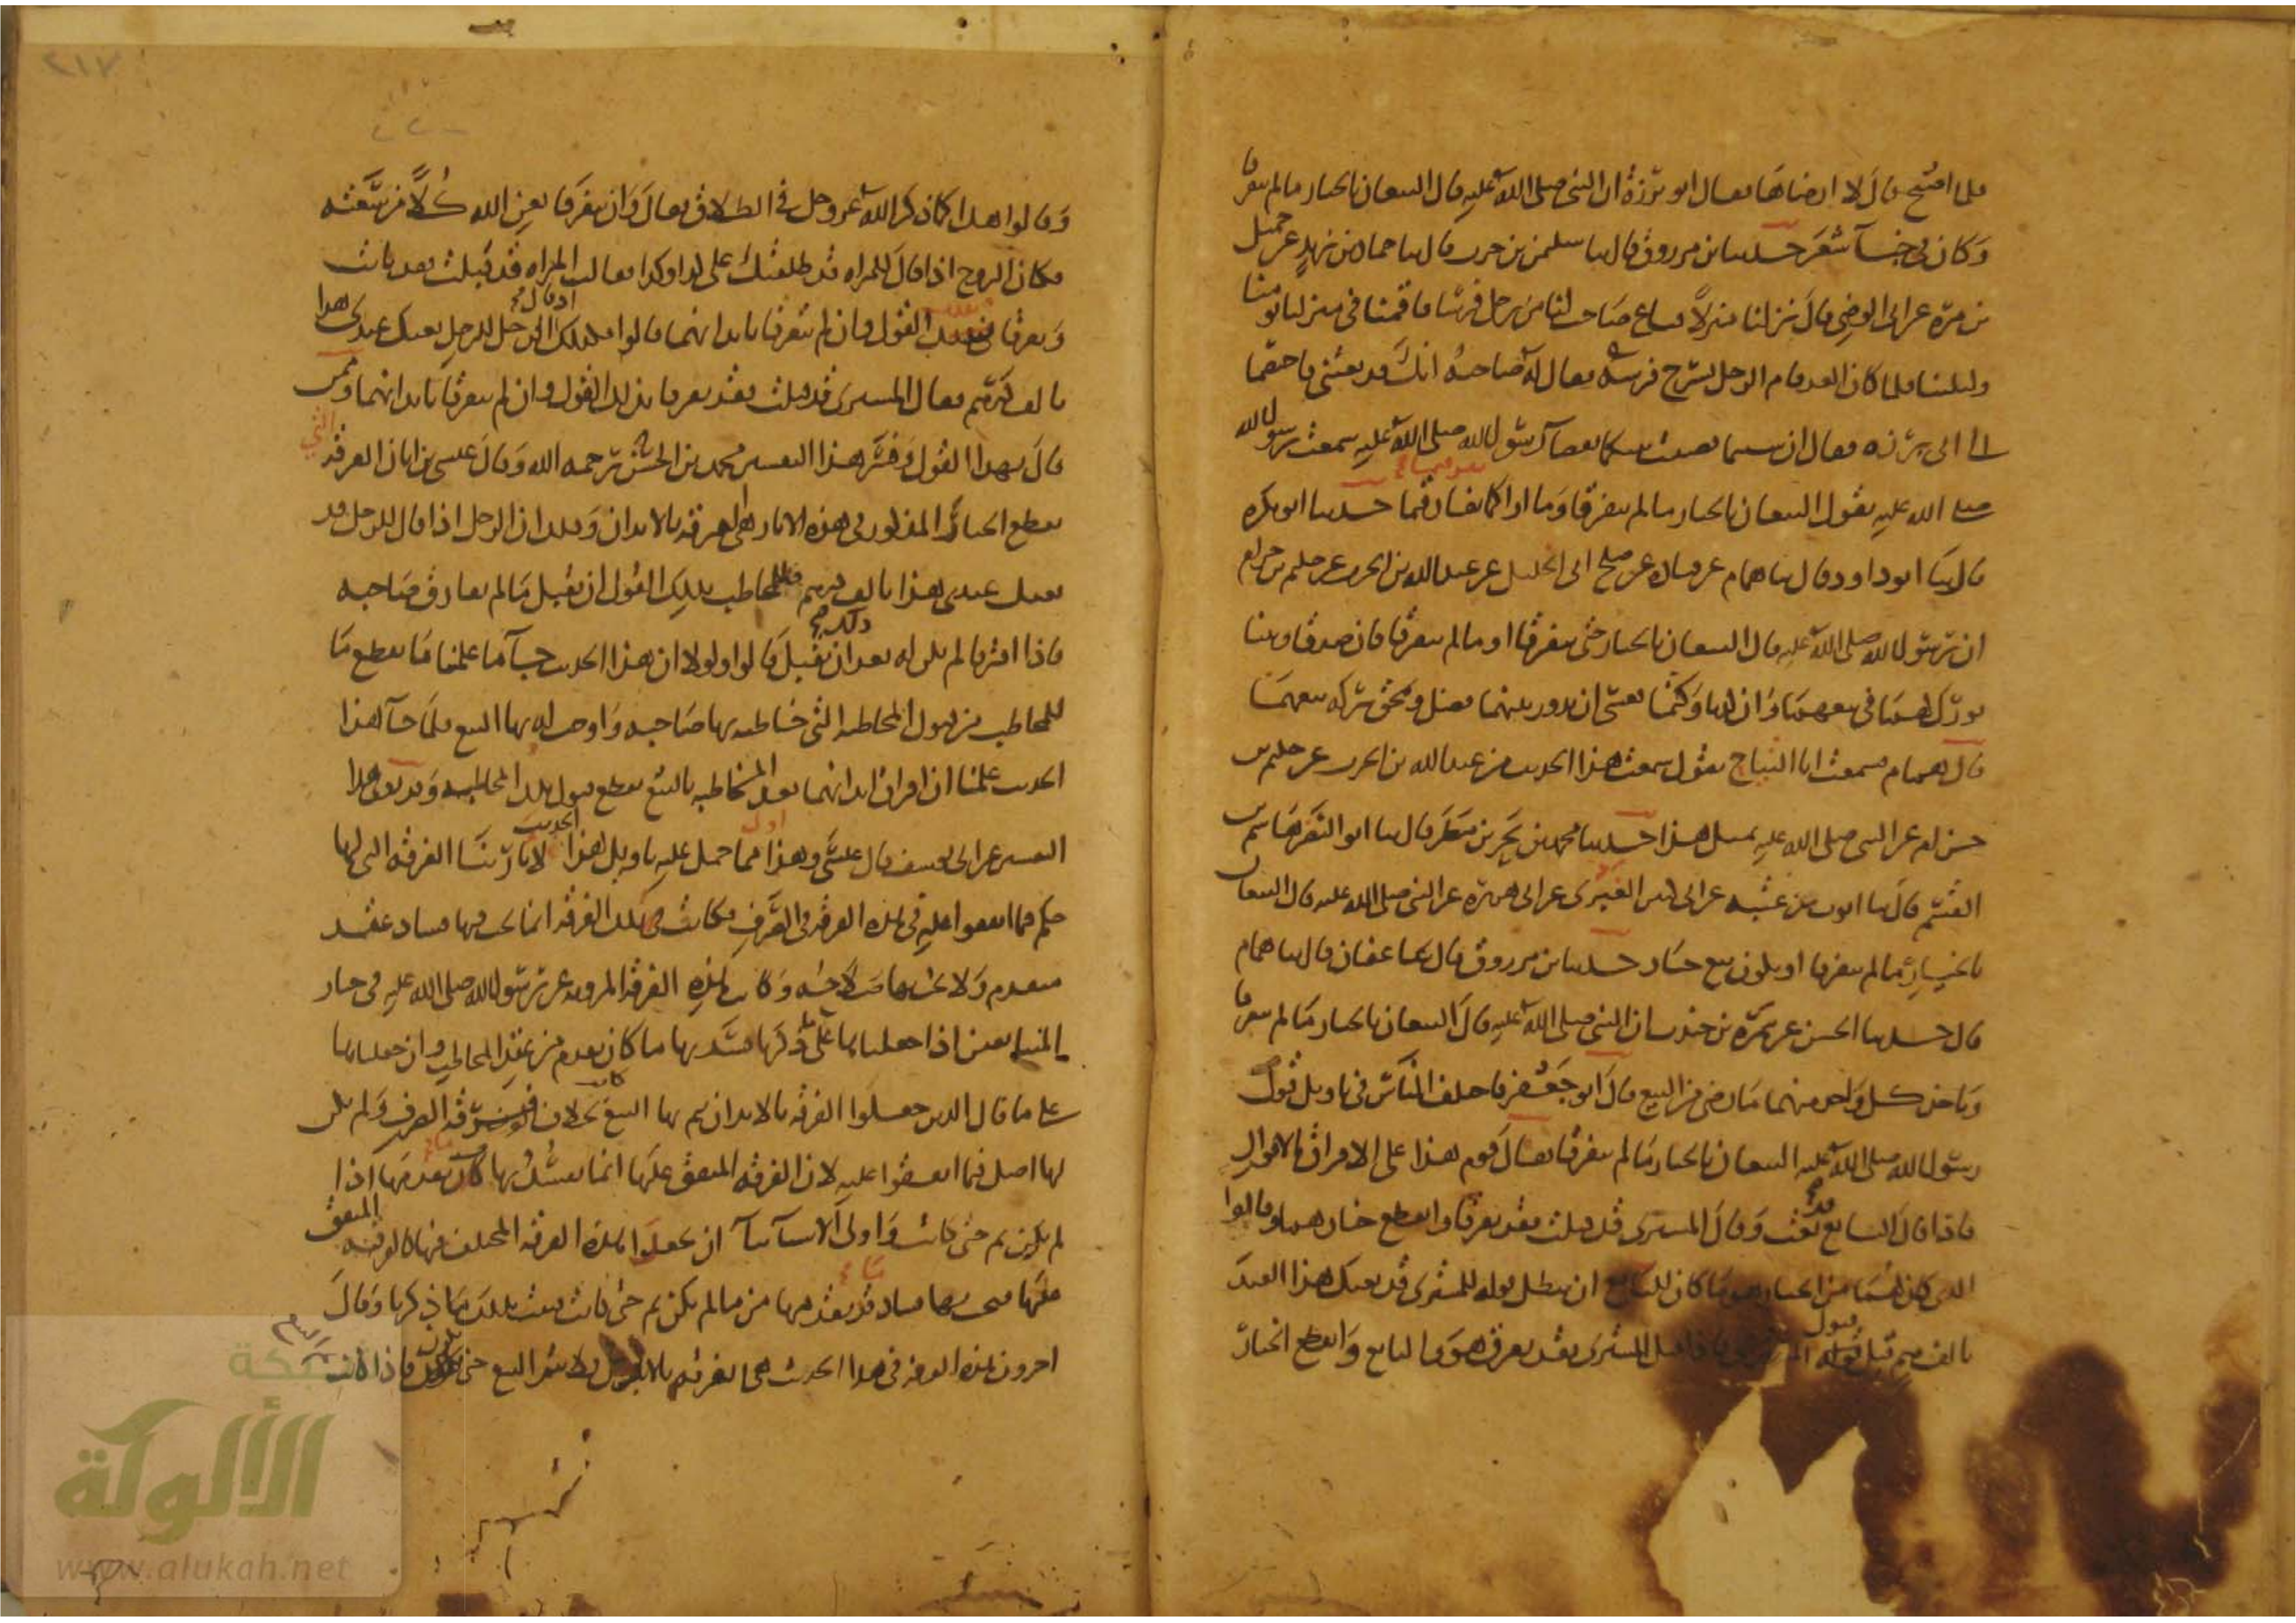 فلما اصبح قال لا ارضاها فقال ابو برزة ان النبي صلى الله عليه قال البيعان بالخيار ما لم يتفرقا
وكان في خبآ شعر حدثنا ابن مرزوق قال ثنا سليمن بن حرب قال ثنا حماد بن زيد عن جميل
بن مرة عن ابى الوضي قال نزلنا منزلا فباع صاحب لنا من رجل فرسا فاقمنا في منزلنا يومنا
وليلتنا فلما كان الغد قام الرجل يسرج فرسه فقال له صاحبه انك قد بعتني فاختصما
الى ابى برزه فقال ان شيتما قضيت بينكما بقضآ رسول الله صلى الله عليه سمعت رسول الله
صلى الله عليه يقول البيعان بالخيار ما لم يتفرقا وما اراكما تفرقتما حدثنا ابو بكره
قال ثنا ابو داود قال ثنا همام عن قتاده عن صلح ابى الخليل عن عبد الله بن الحرث عن حكيم بن حزام
ان رسول الله صلى الله عليه قال البيعان بالخيار حتى يتفرقا او ما لم يتفرقا فان صدقا وبينا
بورك لهما في بيعهما وان كذبا وكتما فعسى ان يدور بينهما فضل وتمحق بركه بيعهما
قال همام سمعت ابا التياح يقول سمعت هذا الحديث من عبد الله بن الحرث عن حكيم بن
حزام عن النبي صلى الله عليه بمثل هذا حدثنا محمد بن بحر بن مطر قال ثنا ابو النضر هاشم بن
القسم قال ثنا ايوب بن عتبه عن ابى كثير الغبري عن ابى هريرة عن النبي صلى الله عليه قال البيعان
بالخيار ما لم يتفرقا او يكون بيع خيار حدثنا ابن مرزوق قال ثنا عفان قال ثنا همام
قال حدثنا الحسن عن سمرة بن جندب ان النبي صلى الله عليه قال البيعان بالخيار ما لم يتفرقا
وياخذ كل واحد منهما ما رضي من البيع قال ابو جعفر فاختلف الناس في تاويل قول
رسول الله صلى الله عليه البيعان بالخيار ما لم يتفرقا فقال قوم هذا على الافتراق بالاقوال
فاذا قال البايع قد بعت وقال المشتري قد قبلت فقد تفرقا وانقطع خيارهما وقالوا
الذي كان لهما من الخيار هو ما كان للبايع ان يبطل قوله للمشتري قد بعتك هذا العبد
بالف درهم قبل قبول المشتري فاذا قبل المشتري فقد تفرق هو والبايع وانقطع الخيار
وقالوا هذا كما ذكر الله عز وجل في الطلاق فقال وان يتفرقا يغن الله كلا من سعته
فكان الزوج اذا قال للمراه قد طلقتك على كذا وكذا فقالت المراه قد قبلت فقد بانت
وتفرقا بذلك القول وان لم يتفرقا بابدانهما قالوا فكذلك اذا قال الرجل للرجل قد بعتك عبدى هذا
بالف درهم فقال المشترى قد قبلت فقد تفرقا بذلك القول وان لم يتفرقا بابدانهما وممن
قال بهذا القول وفسر هذا التفسير محمد بن الحسن رحمه الله وقال عيسى بن ابان الفرقة التي
تقطع الخيار المذكور في هذه الاثار هي الفرقه بالابدان وذلك ان الرجل اذا قال للرجل قد
بعتك عبدى هذا بالف درهم فللمخاطب بذلك القول ان يقبل ما لم يفارق صاحبه
فاذا افترقا لم يكن له بعد ذلك ان يقبل قالوا ولولا ان هذا الحديث جآ ما علمنا ما يقطع ما
للمخاطب من قبول المخاطبة التى خاطبه بها صاحبه واوجب له بها البيع فلما جآ هذا
الحديث علمنا ان افتراق ابدانهما بعد المخاطبه بالبيع يقطع قبول تلك المخاطبه وقد روى هذا
التفسير عن ابى يوسف قال عيسى وهذا اولى ما حمل عليه تاويل هذا الحديث لانا راينا الفرقه التى لها
حكم فيما اتفقوا عليه هي الفرقه في الصرف فكانت تلك الفرقه انما يجب بها فساد عقد
متقدم ولا يجب بها صلاحه وكانت هذه الفرقه المرويه عن رسول الله صلى الله عليه في خيار
المتبايعين اذا جعلناها على ما ذكرنا فسد بها ما كان تقدم من عقد المخاطب وان جعلناها
على ما قال الذين جعلوا الفرقه بالابدان يتم بها البيع كانت بخلاف فرقة الصرف ولم يكن
لها اصل فيما اتفقوا عليه لان الفرقه المتفق عليها انما يفسد بها ما تقدمها اذا
لم يكن تم حتى كانت واولى الاشيآ بنا ان نجعل هذه الفرقه المختلف فيها كالفرقه المتفق
عليها فيجب بها فساد ما قد تقدمها من ما لم يكن تم حتى كانت فثبت بذلك ما ذكرنا وقال
اخرون هذه الفرقه في هذا الحديث هي الفرقه بالابدان ولا يتم البيع حتى تكون فاذا كانت
تم البيع
شبكة
الألوكة
www.alukah.net
٢١٧